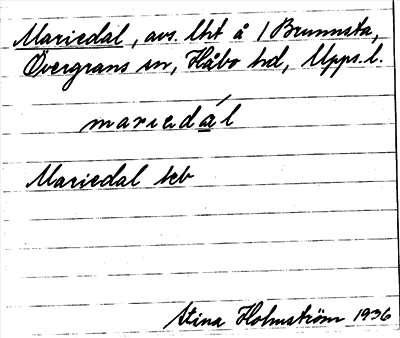 Mariedal, avs. lht å 1 Brunnsta,
Övergrans sn, Håbo hd, Upps. l.
mariedá̲l
Mariedal seb
Stina Holmström 1936